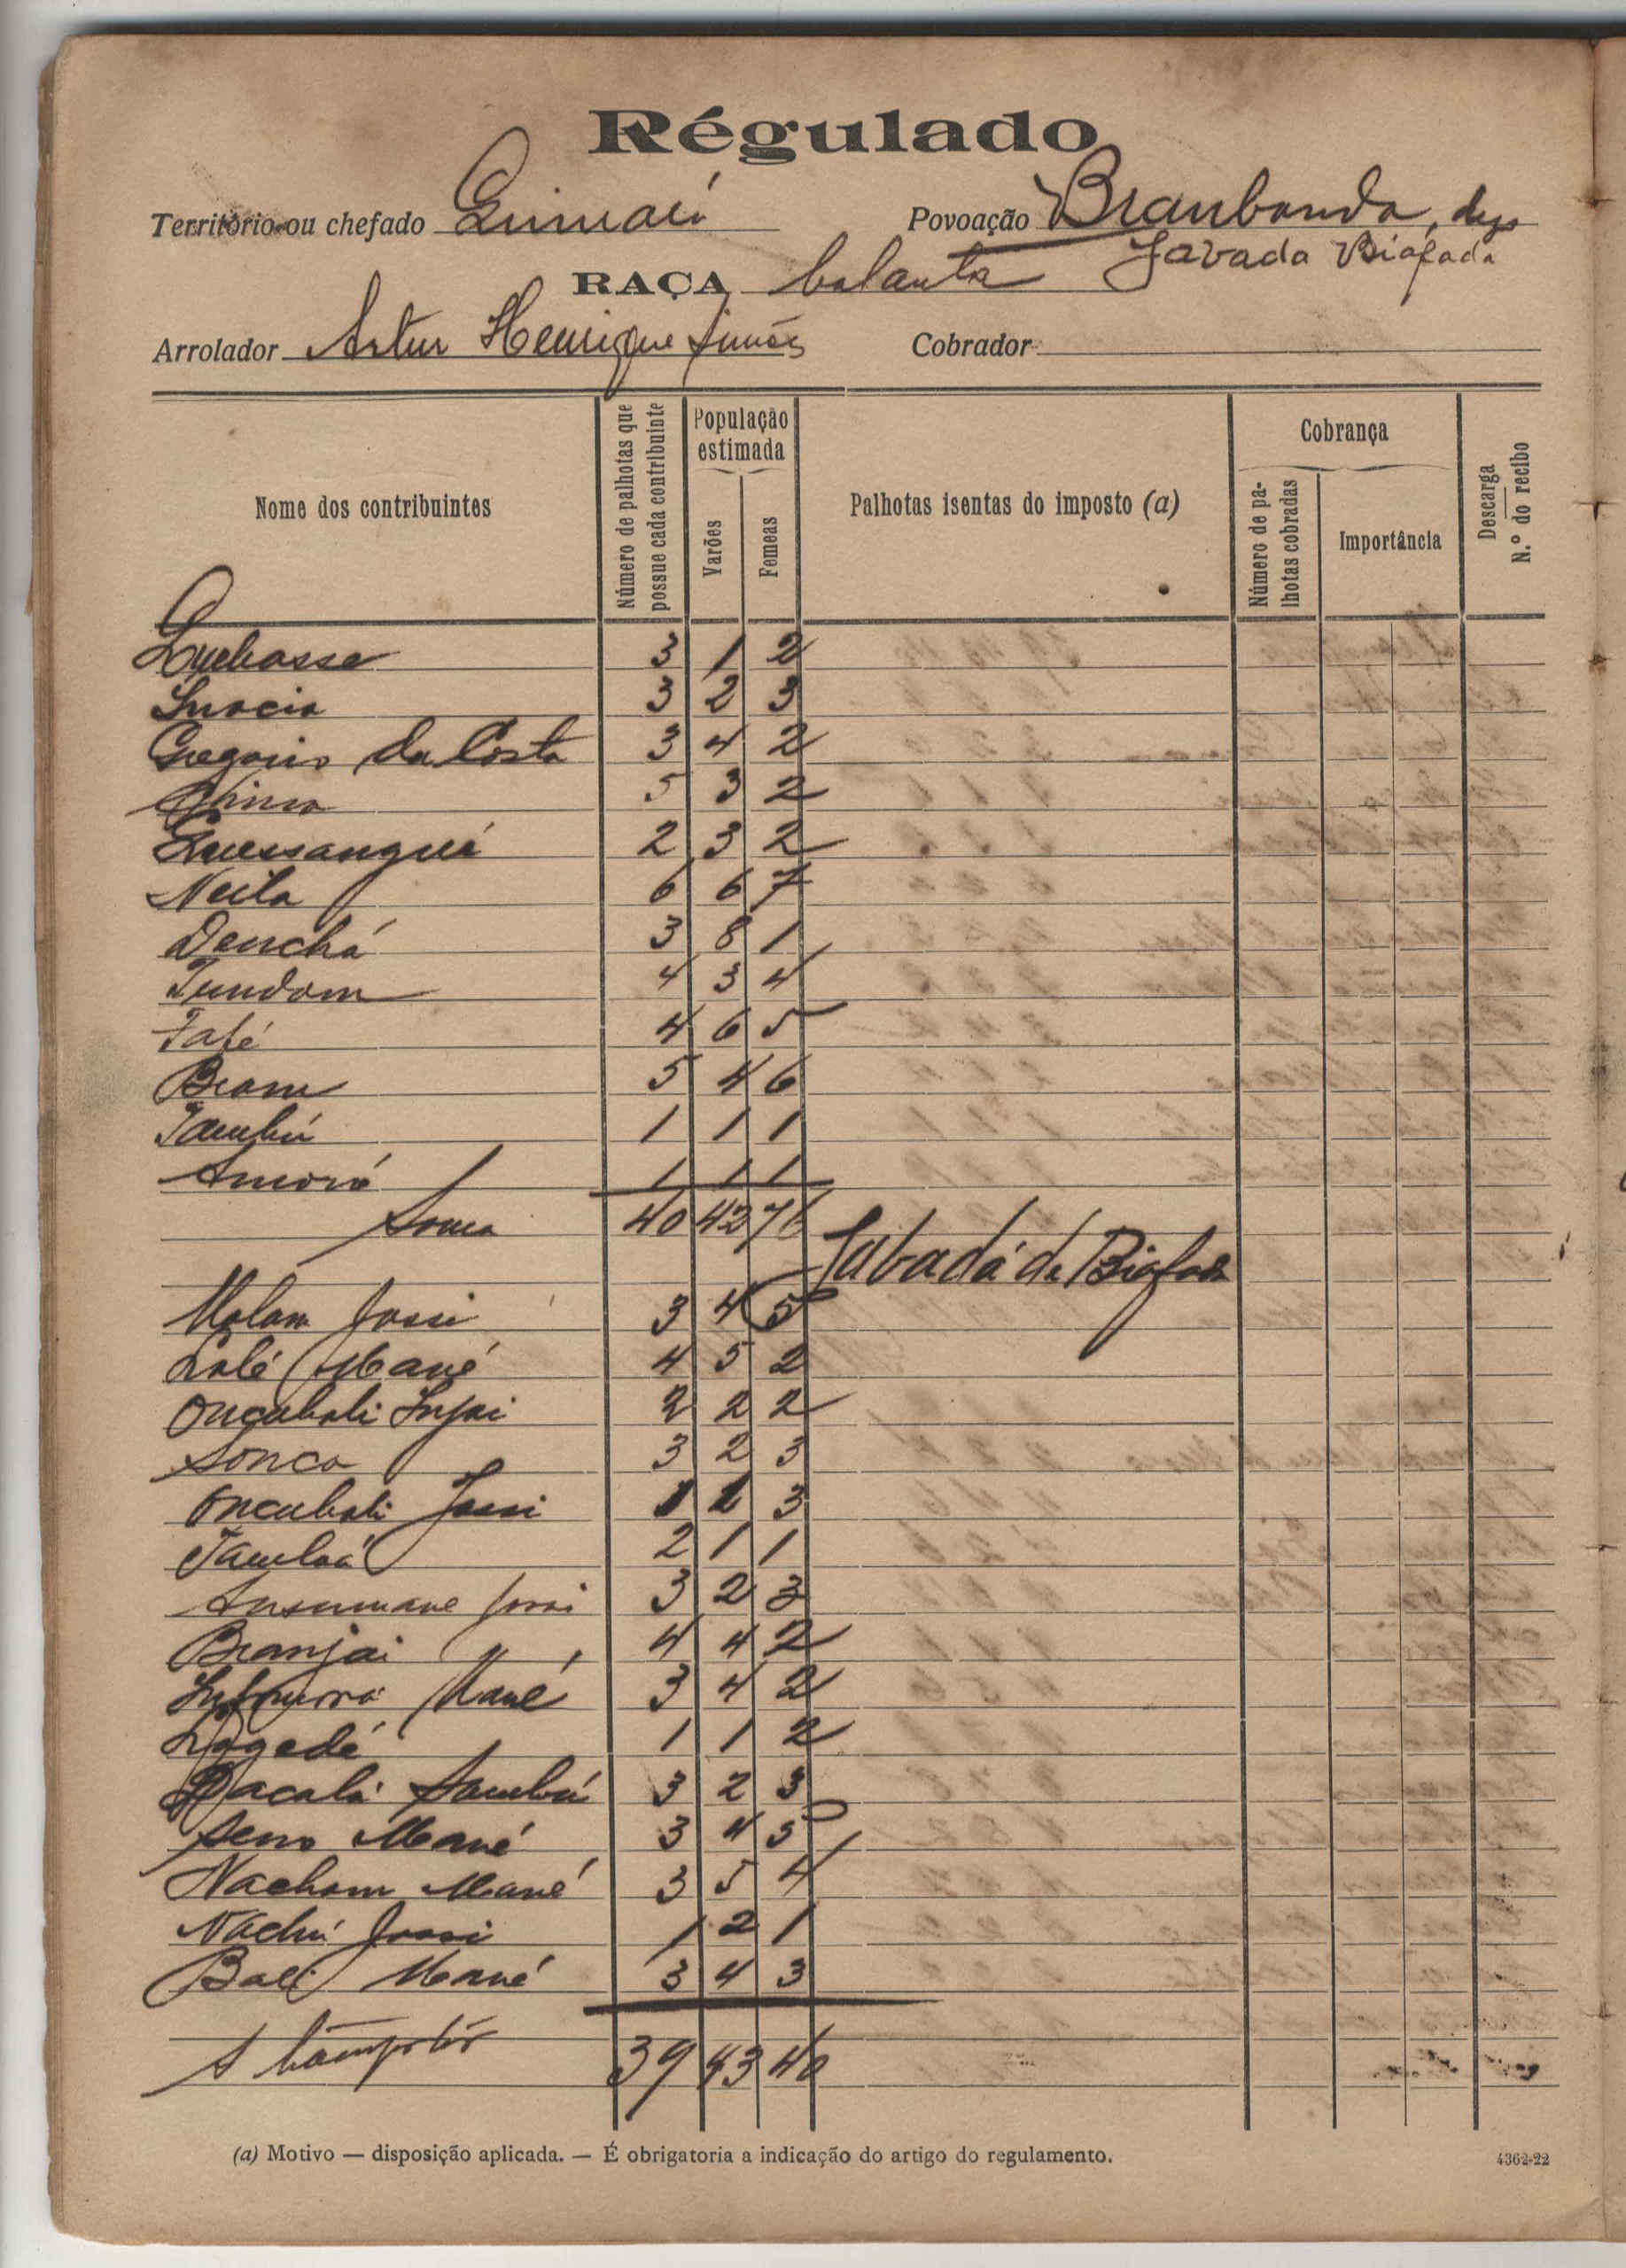 Régulado
Território ou chefado Povoação Braubanda,
Jabada Biafada
RAÇA balanta
Arrolador Artur Henrique Simões Cobrador
Nome dos contribuintes Número de palhotas que possue cada contribuinte População estimada Varões Femeas Palhotas isentas do imposto (a) Cobrança Número de palhotas cobradas Importância Descarga N.º do recibo
3 1 2
Inacia 3 2 3
Gregorio da Costa 3 4 2
5 3 2
2 3 2
Neila 6 6 7
Denchá 3 8 1
Tundam 4 3 4
Fafé 4 6 5
Bram 5 4 6
Tambú 1 1 1
1 1 1
Soma 40 42 76
Jabadá de Biafada
Malam Jassi 3 4 5
Lalé Mané 4 5 2
Oncubali Injai 2 2 2
Sonco 3 2 3
Oncubali Jassi 1 1 3
Tambá 2 1 1
Ansumane Jassi 3 2 3
Branjai 4 4 2
Mané 3 4 2
1 1 2
3 2 3
Seno Mané 3 4 5
Nacham Mané 3 5 4
Nachú Jassi 1 2 1
Bali Mané 3 4 3
A transportar 39 43 40
(a) Motivo — disposição aplicada. — É obrigatoria a indicação do artigo do regulamento.
4362-22